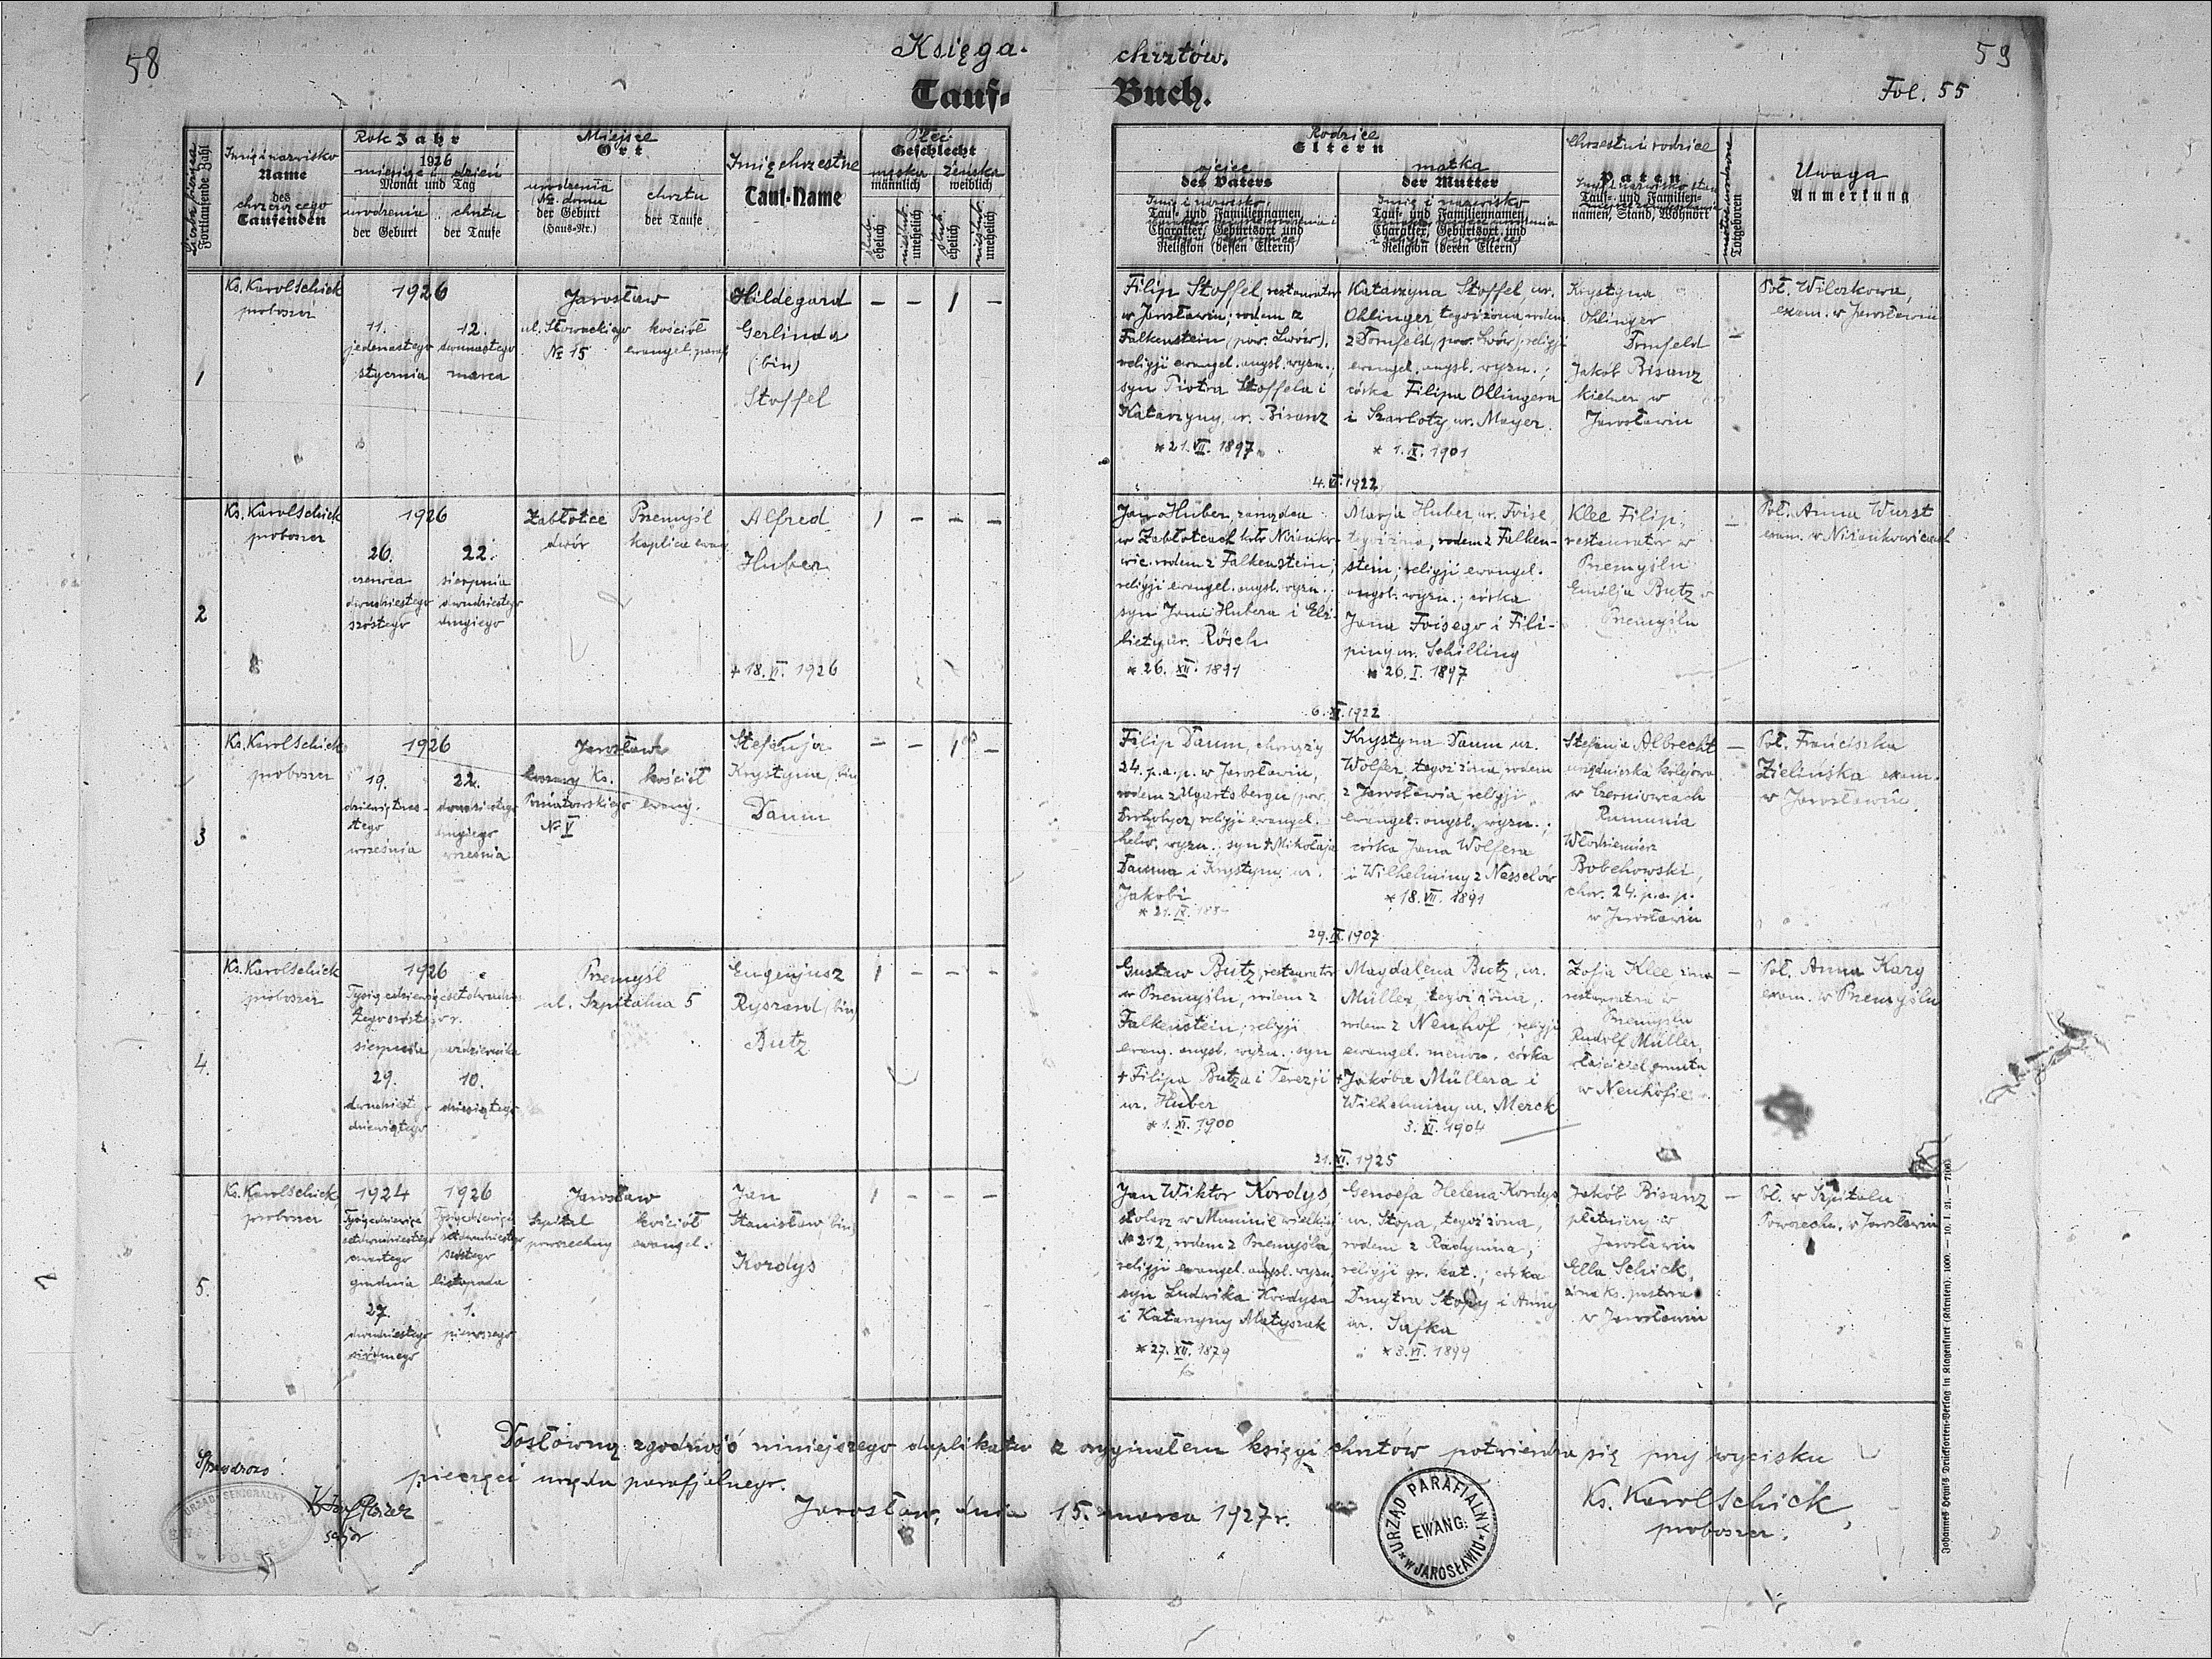 58
Księga
chrztów.
59
Tauf-
Buch.
Fol. 55
Liczba porząd.
Fortlaufende Zahl
Imię i nazwisko
Name
des
chrzczącego
Taufenden
Rok Jahr
1926
miesiąc i dzień
Monat und Tag
urodzenia
der Geburt
chrztu
der Taufe
Miejsce
Ort
urodzenia
(№ domu
der Geburt
(Haus-Nr.)
chrztu
der Taufe
Imię chrzestne
Tauf-Name
Płeć
Geschlecht
męska
männlich
żeńska
weiblich
ślub.
ehelich
nieślub.
unehelich
ślub.
ehelich
nieślub.
unehelich
Rodzice
Eltern
ojciec
des Vaters
Imię i nazwisko,
Tauf- und Familiennamen,
Charakter, Geburtsort und
Religion (dessen Eltern)
matka
der Mutter
Imię i nazwisko
Tauf- und Familiennamen,
Charakter, Geburtsort und
Religion (deren Eltern)
Chrzestni rodzice
Paten
Imię i nazwisko stan
Tauf- und Familien-
namen, Stand, Wohnort
Totgeboren
Uwaga
Anmerkung
1
Ks. Karol Schick
proboszcz
1926
11.
jedenastego
stycznia
12.
dwunastego
marca
Jarosław
ul. Słowackiego
№ 15
kościół
ewangel. paraf.
Hildegard
Gerlinda
(bin)
Stoffel
– – 1 –
Filip Stoffel, restaurator
w Jarosławiu; rodem z
Falkenstein (pow. Lwów),
religji ewangel. augsb. wyzn.;
syn Piotra Stoffela i
Katarzyny, ur. Bisanz
* 21. VII. 1897
Katarzyna Stoffel, ur.
Ohlinger tegoż żona rodem
z Dornfeld, pow. Lwów, religji
ewangel. augsb. wyzn.;
córka Filipa Ohlingera
i Szarloty, ur. Mayer.
* 1. X. 1901
Krystyna
Ohlinger
Dornfeld
Jakób Bisanz
kielner w
Jarosławiu
–
Poł. Wilczkowa,
exam. w Jarosławiu
4. VI. 1922
2
Ks. Karol Schick
proboszcz
1926
26.
czerwca
dwudziestego
szóstego
22.
sierpnia
dwudziestego
drugiego
Zabłotce
dwór
Przemyśl
kaplica ewang.
Alfred
Huber
+ 18. VI. 1926
1 – – –
Jan Huber, zarządca
w Zabłotcach koło Niżanko-
wic. rodem z Falkenstein;
religji ewangel. augsb. wyzn.;
syn Jana Hubera i Elż-
biety ur. Rösch
* 26. XII. 1891
Marja Huber, ur. Foise,
tegoż żona, rodem z Falken-
stein; religji ewangel.
augsb. wyzn.; córka
Jana Foisego i Fili-
piny ur. Schilling
* 26. I. 1897
Klee Filip,
restaurator w
Przemyślu
Emilja Butz w
Przemyślu
–
Poł. Anna Wurst
exam. w Niżankowicach
6. XI. 1922
3
Ks. Karol Schick
proboszcz
1926
19.
dziewiętnas-
tego
września
22.
dwudziestego
drugiego
września
Jarosław
koszary Ks.
Poniatowskiego
№ V
kościół
ewang.
Stefanja
Krystyna (bin)
Daum
– – 1 –
Filip Daum, chorąży
24. p.a.p. w Jarosławiu,
rodem z Ugartsbergu (pow.
Drohobycz) religji ewangel.
helw. wyzn. syn + Mikołaja
Dauma i Krystyny ur.
Jakobi
Krystyna Daum ur.
Wolfer, tegoż żona, rodem
z Jarosławia religji
ewangel. augsb. wyzn.;
córka Jana Wolfera
i Wilhelminy z Nesselów
* 18. VII. 1891
Stefania Albrecht
urzędniczka kolejowa
w Czerniowcach
Rumunia
Włodzimierz
Bobehowski,
chor. 24. p.a.p.
w Jarosławiu
–
Poł. Franciszka
Zielińska exam.
w Jarosławiu.
29. IX. 1907
4.
Ks. Karol Schick
proboszcz
1926
sierpnia
29.
dwudziestego
dziewiątego
października
10.
dziesiątego
Przemyśl
ul. Szpitalna 5
Eugenjusz
Ryszard (bin)
Butz
1 – – –
Gustaw Butz, restaurator
w Przemyślu, rodem z
Falkenstein; religji
ewang. augsb. wyzn. syn
+ Filipa Butza i Terezji
ur. Huber
* 1. XI. 1900
Magdalena Butz, ur.
Müller, tegoż żona,
rodem z Neuhof religji
ewangel. menon. córka
+ Jakóba Müllera i
Wilhelminy ur. Merck
3. XI. 1904
Zofja Klee żona
restauratora w
Przemyślu
Rudolf Müller,
właściciel gruntu
w Neuhofie
–
Poł. Anna Karg
exam. w Przemyślu
21. XI. 1925
5.
Ks. Karol Schick,
proboszcz
1924
Tysiącdziewięć-
setdwudziestego
czwartego
grudnia
27.
dwudziestego
siódmego
1926
Tysiącdziewięć-
setdwudziestego
szóstego
listopada
1.
pierwszego
Jarosław
Szpital
powszechny
kościół
ewangel.
Jan
Stanisław (bin)
Kordys
1 – – –
Jan Wiktor Kordys
stolarz w Muninie wielkiej
№ 212, rodem z Przemyśla,
religji ewangel. augsb. wyzn.
syn Ludwika Kordysa
i Katarzyny Matyszak
* 27. XII. 1879
Genoefa Helena Kordys,
ur. Stopa, tegoż żona,
rodem z Radymna;
religji gr. kat.; córka
Dmytra Stopy i Anny
ur. Safka
* 3. VI. 1899
Jakób Bisanz
płatniczy w
Jarosławiu
Ella Schick,
żona ks. pastora
w Jarosławiu
–
Poł. w Szpitalu
Powszechn. w Jarosławiu
Dosłowną zgodność niniejszego duplikatu z oryginałem księgi chrztów potwierdza się przy wycisku
pieczęci urzędu parafjalnego.
Jarosław, dnia 15. marca 1927 r.
Sprawdzono!
senjor
URZĄD SENIORALNY
W POLSCE
URZĄD PARAFIALNY
EWANG.
W JAROSŁAWIU
Ks. Karol Schick,
proboszcz.
Johannes Heyn's Drucksorten-Verlag in Klagenfurt (Kärnten). 1000. — 10. I. 21. — 7100.